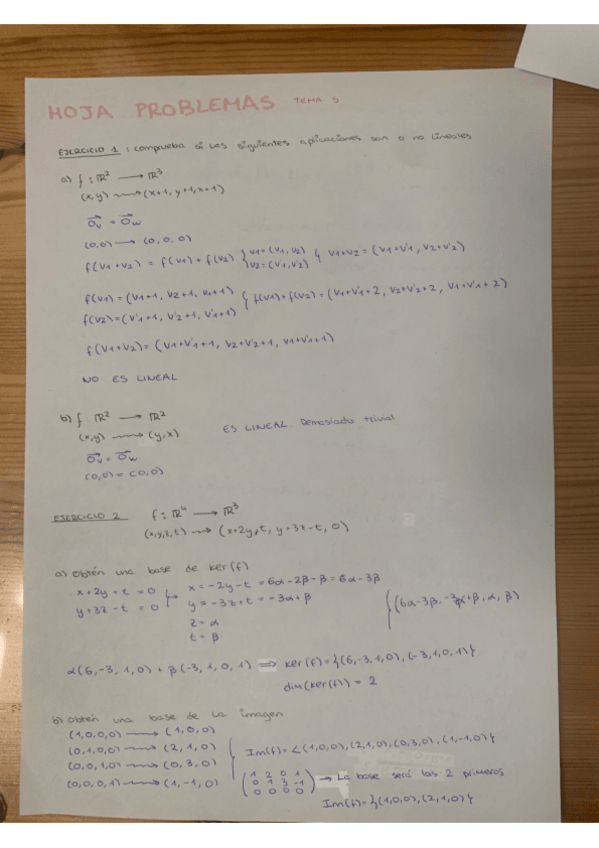 HOJA PROBLEMAS TEMA 5
EJERCICIO 1 : comprueba si las siguientes aplicaciones son o no lineales
a) f : ℝ² → ℝ³
(x,y) → (x+1, y+1, x+1)
0⃗v = 0⃗w
(0,0) → (0,0,0)
f(v1+v2) = f(v1)+f(v2) } v1=(v1,v2) v2=(v'1,v'2) { v1+v2 = (v1+v'1, v2+v'2)
f(v1) = (v1+1, v2+1, v1+1) { f(v1)+f(v2) = (v1+v'1+2, v2+v'2+2, v1+v'1+2)
f(v2)=(v'1+1, v'2+1, v'1+1)
f(v1+v2)= (v1+v'1+1, v2+v'2+1, v1+v'1+1)
NO ES LINEAL
b) f : ℝ² → ℝ²
(x,y) → (y,x) ES LINEAL Demasiado trivial
0⃗v = 0⃗w
(0,0) = (0,0)
EJERCICIO 2 f : ℝ⁴ → ℝ³
(x,y,z,t) → (x+2y+t, y+3z-t, 0)
a) Obtén una base de ker(f)
x+2y+t = 0 } x = -2y-t = 6α-2β-β = 6α-3β
y+3z-t = 0 y = -3z+t = -3α+β { (6α-3β, -3α+β, α, β)
z = α
t = β
α(6,-3,1,0) + β(-3,1,0,1) ⟹ ker(f) = {(6,-3,1,0), (-3,1,0,1)}
dim(ker(f)) = 2
b) Obtén una base de la imagen
(1,0,0,0) → (1,0,0)
(0,1,0,0) → (2,1,0) { Im(f) = <(1,0,0),(2,1,0),(0,3,0),(1,-1,0)}
(0,0,1,0) → (0,3,0)
(0,0,0,1) → (1,-1,0) (1 2 0 1 0 1 3 -1 0 0 0 0) → La base será los 2 primeros
Im(f) = {(1,0,0),(2,1,0)}